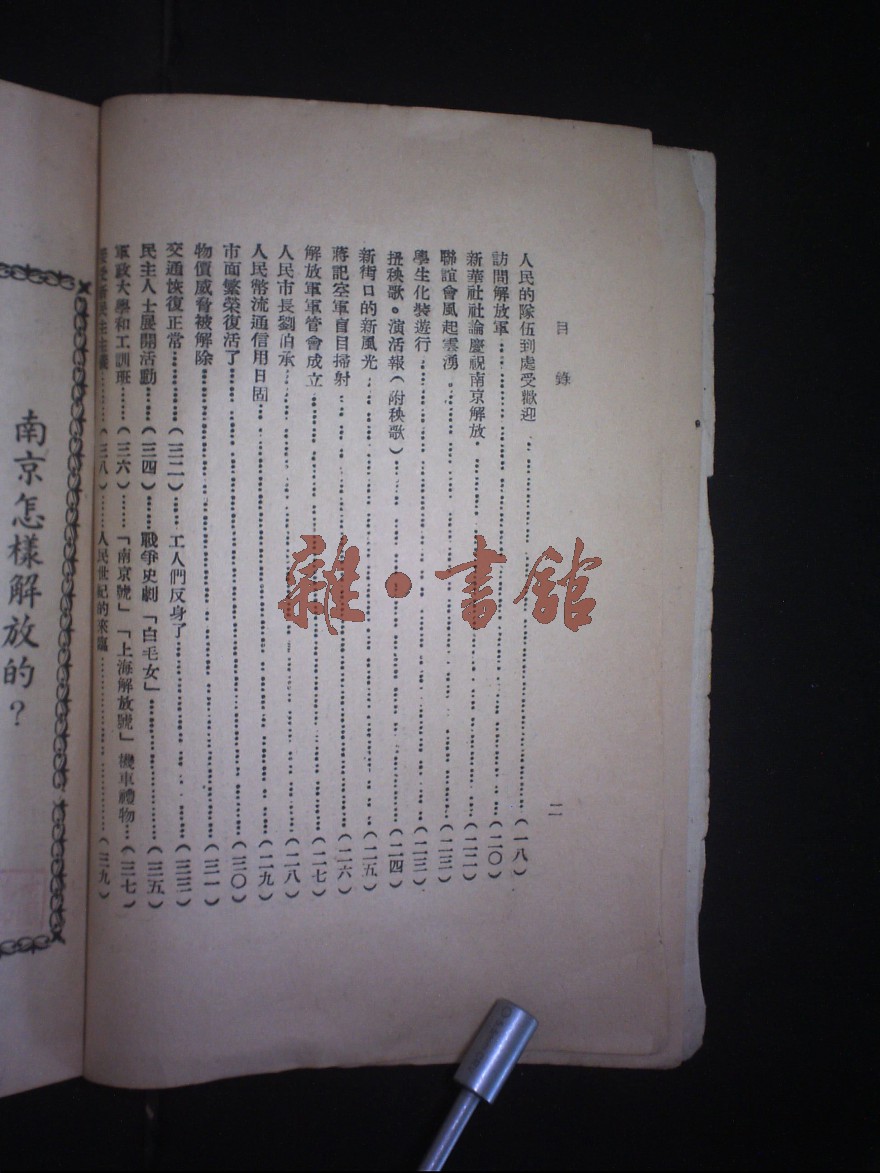 目錄
二
人民的隊伍到處受歡迎……(一八)
訪問解放軍……(二〇)
新華社社論慶祝南京解放……(二二)
聯誼會風起雲湧……(二三)
學生化裝遊行……(二三)
扭秧歌。演活報(附秧歌)……(二四)
新街口的新風光……(二五)
蔣記空軍盲目掃射……(二六)
解放軍軍管會成立……(二七)
人民市長劉伯承……(二八)
人民幣流通信用日固……(二九)
市面繁榮復活了……(三〇)
物價威脅被解除……(三一)
交通恢復正常……(三二)……工人們反身了……(三三)
民主人士展開活動……(三四)……戰爭史劇「白毛女」……(三五)
軍政大學和工訓班……(三六)……「南京號」「上海解放號」機車禮物…(三七)
民主主義……(三八)……人民世紀的來臨……(三九)
南京怎樣解放的?
雜·書館